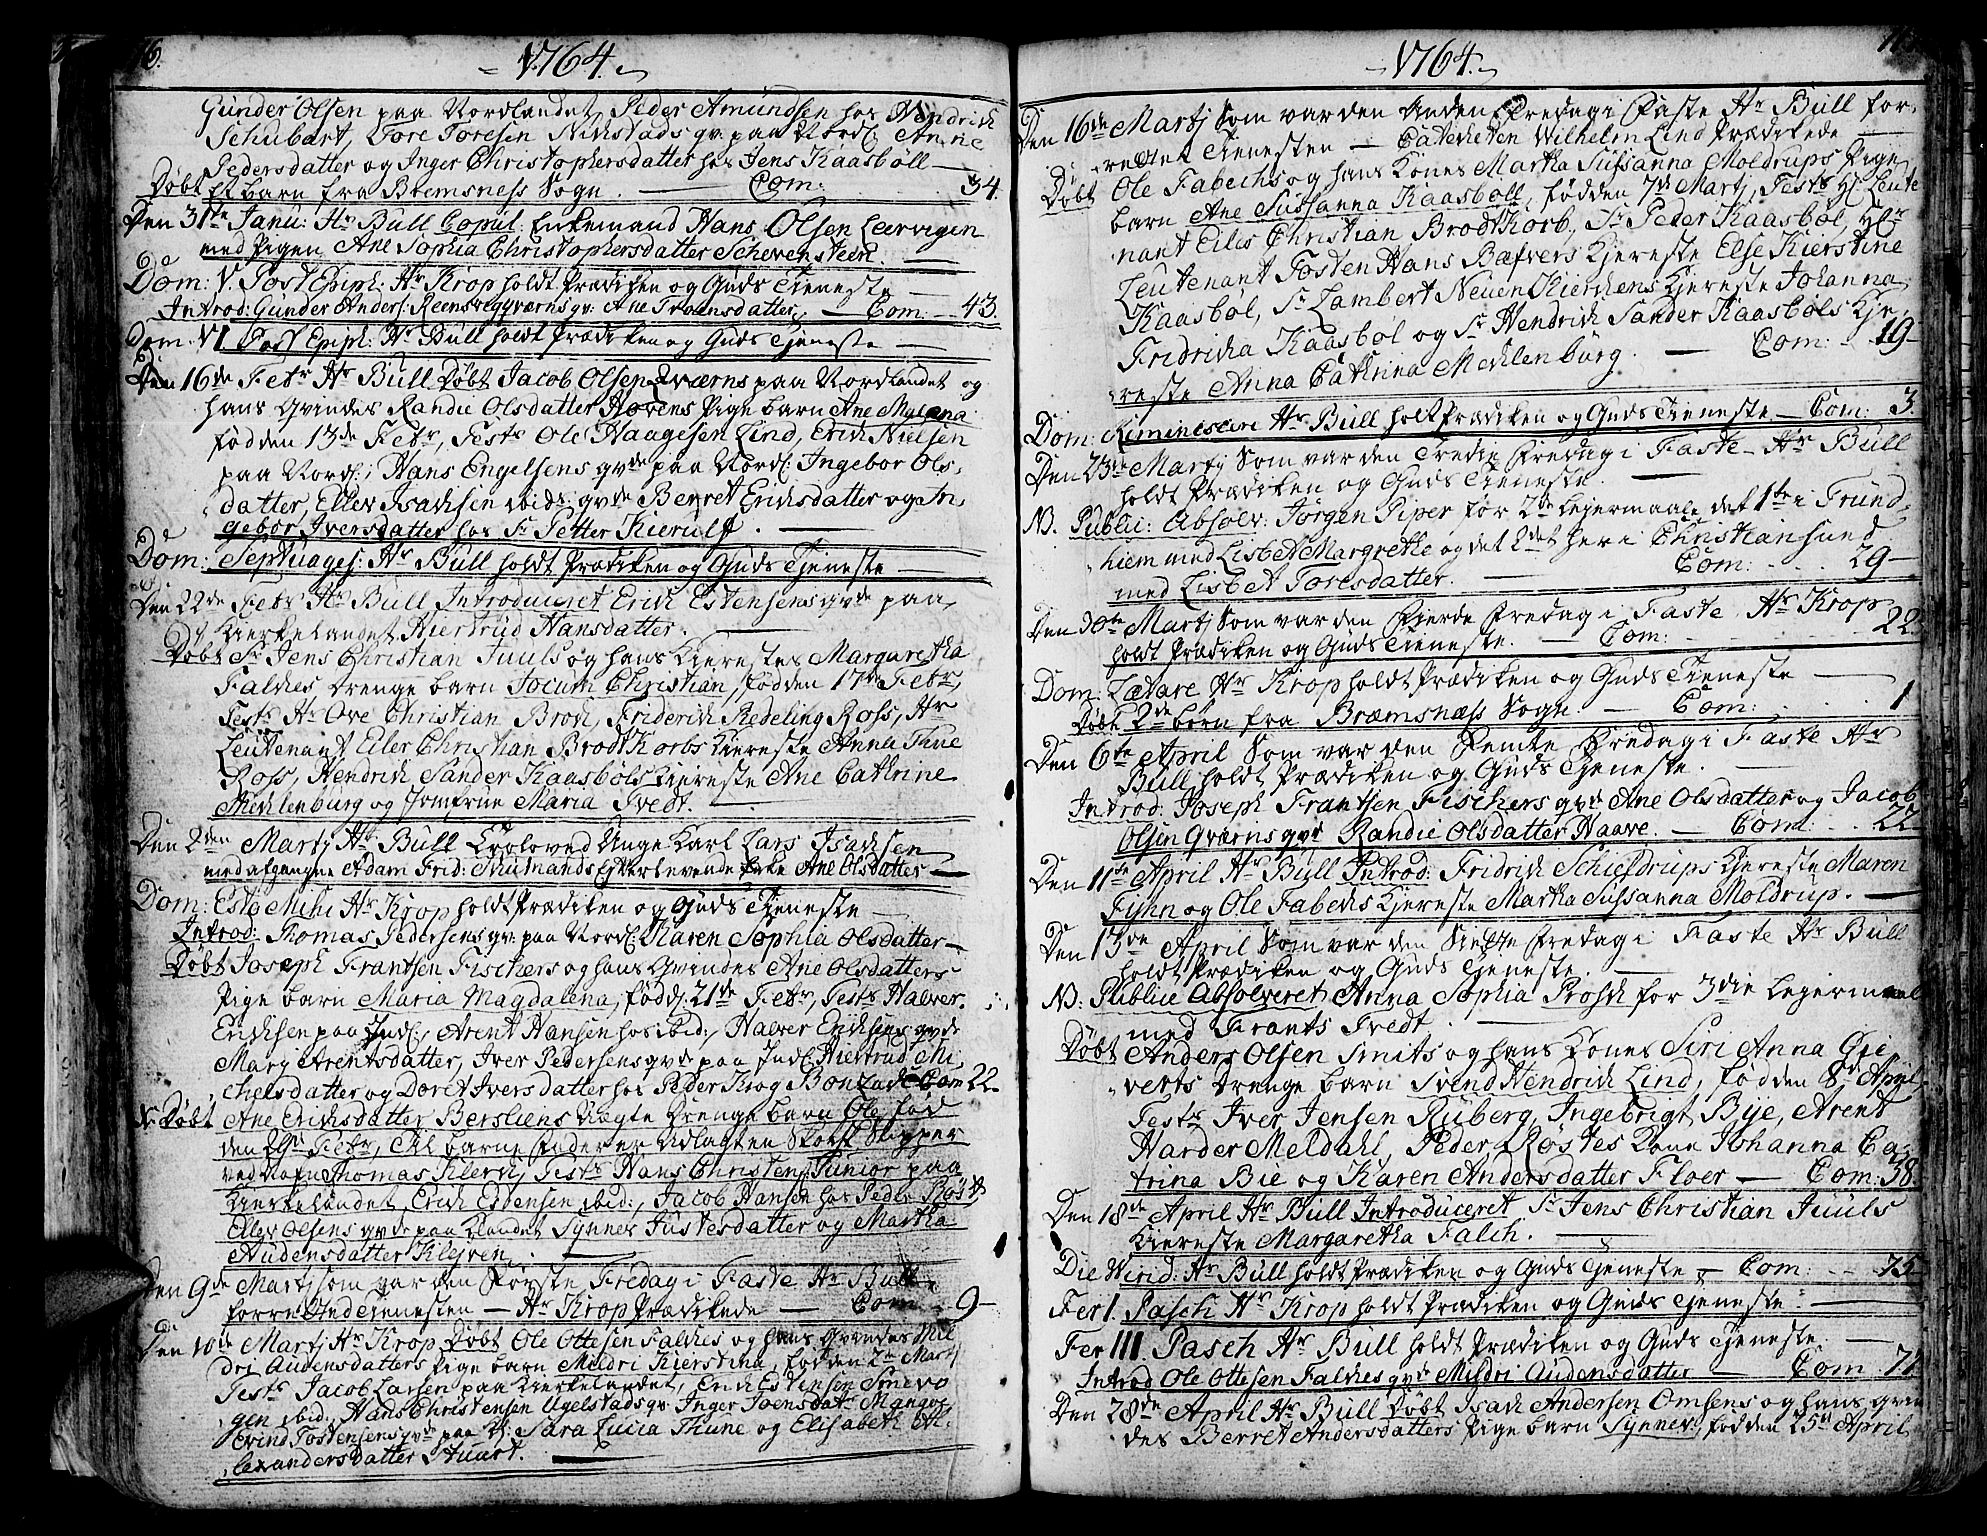 1764.
Gunder Olsen paa Nordlandet, Peder Amundsen hos Hendrich
Schubart, Tore Toresen Nikstads gv: paa Nordl: Anne
Pedersdatter og Inger Christophersdatter hos Jens Kaasbøll —
Døbt Et barn fra Bremsness Sogn. — Com: 34.
Den 31te Janu: Hr Bull Copul: Enkemand Hans Olsen Leervigen
med Pigen Ane Sophia Christophersdatter Schevensteen. —
Dom: V. Post Epiph: Hr Krop holdt Prædiken og Guds Tieneste —
Introd: Gunder Anders: Reensveggværns gv: Ane Troensdatter, — Com: — 43.
Dom: VI Post Epiph: Hr Bull holdt Prædiken og Guds Tjeneste —
Den 16de Febr Hr Bull Døbt Jacob Olsen Qværns paa Nordlandet og
hans Qvindes Randie Olsdatter Hovens Pige barn Ane Malena
fødden 13de Febr, Tests Ole Haagesen Lind, Erich Nielsen
paa Nordl:, Hans Engelsens gvde paa Nordl: Ingebor Ols-
datter, Eller Isachsen ibid: gvde Berret Erichsdatter og In-
gebor Iversdatter hos Sr Petter Kierulf. —
Dom: Septuages: Hr Bull holdt Prædiken og Guds Tjeneste —
Den 22de Febr Hr Bull Introduceret Erich Estensens gvde paa
Kierkelandet Hiertrud Hansdatter. —
Døbt Sr Jens Christian Juuls og hans Kierestes Margaretha
Falches Drenge barn Jocum Christian, fødden 17de Febr,
Tests Hr Ove Christian Broch, Friderich Redeling Ross, Hr
Leutenant Eiler Christian BrodtKorbs Kiereste Anna Thue
Ross, Hendrich Sander Kaasbøls Kiereste Ane Cathrine
Mechlenburg og Jomfrue Maria Tvedt. —
Den 2den Martj Hr Bull Troloved Unge Karl Lars Isachsen
med afgangne Adam Frid: Muhnands Efterlevende Enke Ane Olsdatter —
Dom: Esto Mihi Hr Krop holdt Prædiken og Guds Tieneste —
Introd: Thomas Pedersens gv: paa Nordl: Karen Sophia Olsdatter —
Døbt Joseph Frantsen Fischers og hans Qvindes Ane Olsdatters
Pige barn Maria Magdalena, fødd: 21de Febr, Tests Halver
Erichsen paa Indl:, Arent Hansen hos ibid:, Halver Erichsens gvde
Mary Arentsdatter, Iver Pedersens gvde paa Indl: Hiertrud Mi-
chelsdatter og Doret Iversdatter hos Peder Krog Bonzach — Com 22 —
N. Døbt Ane Erichsdatter Bersliens Uægte Drenge barn Ole fød
den 29de Febr, Til barne Fader er Udlagt en Skotsk Skipper
ved Nafn Thomas Klerch, Tests Hans Christens: Junior paa
Kierkelandet, Erich Estensen ibid:, Jacob Hansen hos Peder Røst,
Eller Olsens gvde paa Landet Synnev Justesdatter og Martha
Audensdatter Kleven. —
Den 9de Martj som var den Første Fredag i Faste Hr Bull
forrettned Tienesten — Hr Krop Prædikede — Com — 9 —
Den 10de Martj Hr Krop Døbt Ole Ottesen Falches og hans Qvindes Mil-
dri Audensdatters Pige barn Mildri Kierstina, fødden 2de Martj
Tests Jacob Larsen paa Kierkelandet, Erich Estensen Smevo-
gen ibid:, Hans Christensen Ugelstads gv: Inger Joensdat:,
Evind Tostensens gvde paa Sara Lucia Thune og Elisabeth A-
lexandersdatter Stuart. —
1764.
Den 16de Martj Som var den Anden Fredag i Faste Hr Bull for-
rettet Tienesten — Catecheten Wilhelm Lind Prædikede —
Døbt Ole Fabechs og hans Kones Martha Sussanna Moldrups Pige
barn Ane Sussanna Kaasbøll, fødden 7de Martj, Tests Hr Leute-
nant Eiler Christian BrodtKorb, Sr Peder Kaasbøl, Hr
Leutenant Tosten Hans Bæfvers Kjereste Else Kierstine
Kaasbøl, Sr Lambert Neuen Kierchens Kjereste Johanna
Fridricha Kaasbøl og Sr Hendrich Sander Kaasbøls Kje-
reste Anna Cathrina Mechlenburg. — Com: 19 —
Dom: Reminescere Hr Bull holdt Prædiken og Guds Tieneste — Com: 3.
Den 23de Martj Som var den Tredie Fredag i Faste — Hr Bull
holdt Prædiken og Guds Tieneste. —
N. Public: Absolv: Jørgen Piper for 2de Lejermaale det 1te i Trund-
hiem med Lisbet Margrethe og det 2det her i Christiansund
med Lisbet Toresdatter. — Com: . . . 29 —
Den 30te Martj Som var den Fjerde Fredag i Faste Hr Krop
holdt Prædiken og Guds Tieneste. — Com: 22
Dom: Lætare Hr Krop holdt Prædiken og Guds Tieneste —
Døbt 2de børn fra Bræmsnæss Sogn. — Com: 1
Den 6te April Som var den Femte Fredag i Faste Hr
Bull holdt Prædiken og Guds Tjeneste. —
Introd. Joseph Frantsen Fischers gvde Ane Olsdatter og Jacob
Olsen Qværns gvde Randie Olsdatter Haave. — Com: . . 22
Den 11te April Hr Bull Introd: Fridrich Schieldrups Kjereste Maren
Fynn og Ole Fabechs Kjereste Martha Sussanna Moldrup. —
Den 13de April Som var den Siette Fredag i Faste Hr Bull
holdt Prædiken og Guds Tieneste. —
N. Publice Absolveret Anna Sophia Prosch for 3die Lejermaal
med Frants Tvedt. —
Døbt Anders Olsen Smits og hans Kones Siri Anna Gie-
verts Drenge barn Svend Hendrich Lind, fødden 8de April,
Tests Iver Jensen Ruberg, Ingebrigt Bije, Arent
Harder Meldahl, Peder Røstes Kone Johanna Ca-
trina Bie og Karen Andersdatter Floer — Com: 38.
Den 18de April Hr Bull Introduceret Sr Jens Christian Juuls
Kiereste Margaretha Falch. —
Die Virid: Hr Bull holdt Prædiken og Guds Tjeneste — Com: — 75
Fer I. Pasch Hr Krop holdt Prædiken og Guds Tjeneste. —
Fer III Pasch Hr Bull holdt Prædiken og Guds Tjeneste. —
Introd Ole Ottesen Falches gvde Mildri Audensdatter — Com: 71
Den 28de April Hr Bull Døbt Isach Andersen Omsens og hans Qvin-
des Berret Andersdatters Pige barn Synnev, fødden 25de April